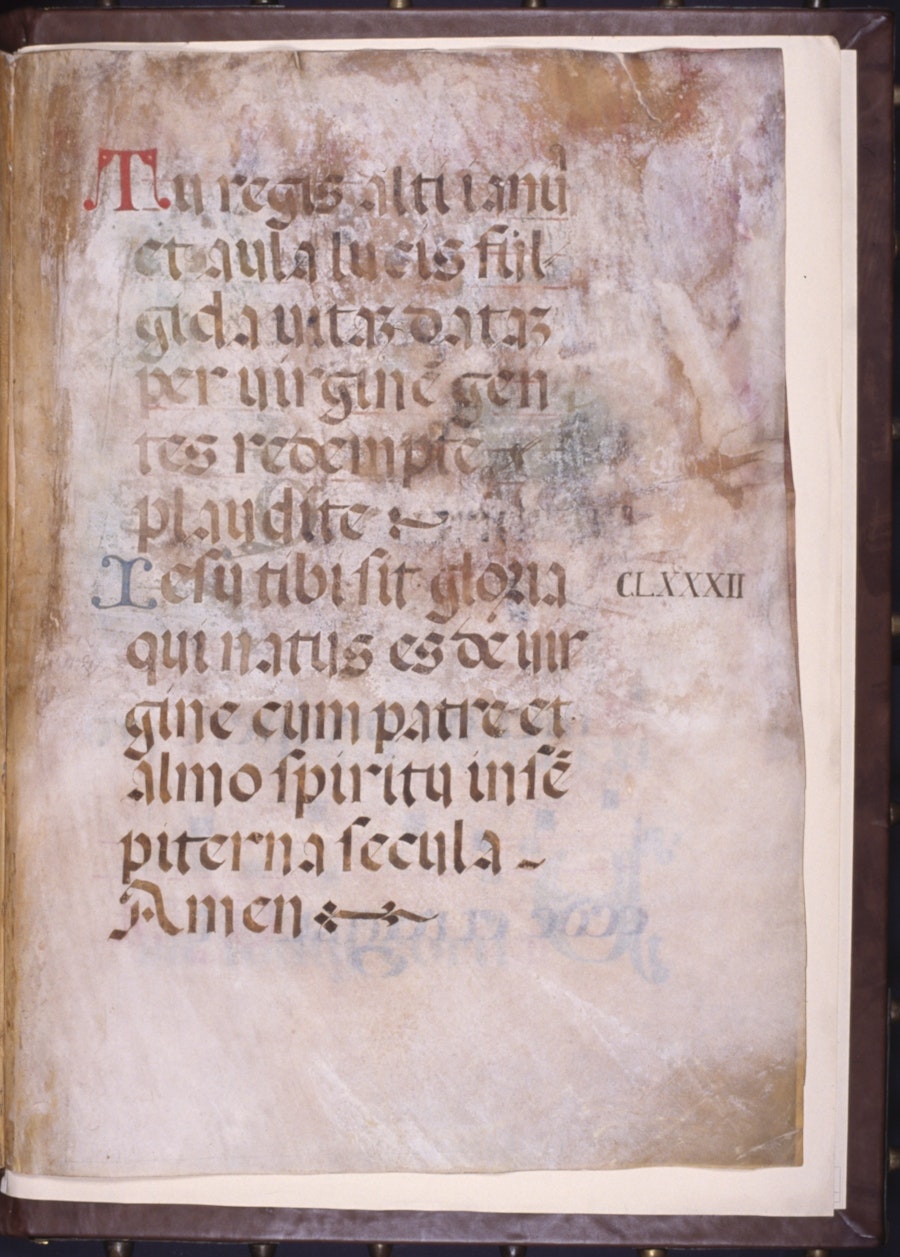 Tu regis alti ianu᷒
et aula lucis ful
gida uitaꝫ dataꝫ
per uirginē gen
tes redempte
plaudite
Iesu tibi sit gloria
CLXXXII
qui natus es de uir
gine cum patre et
almo spiritu in sē
piterna secula
Amen